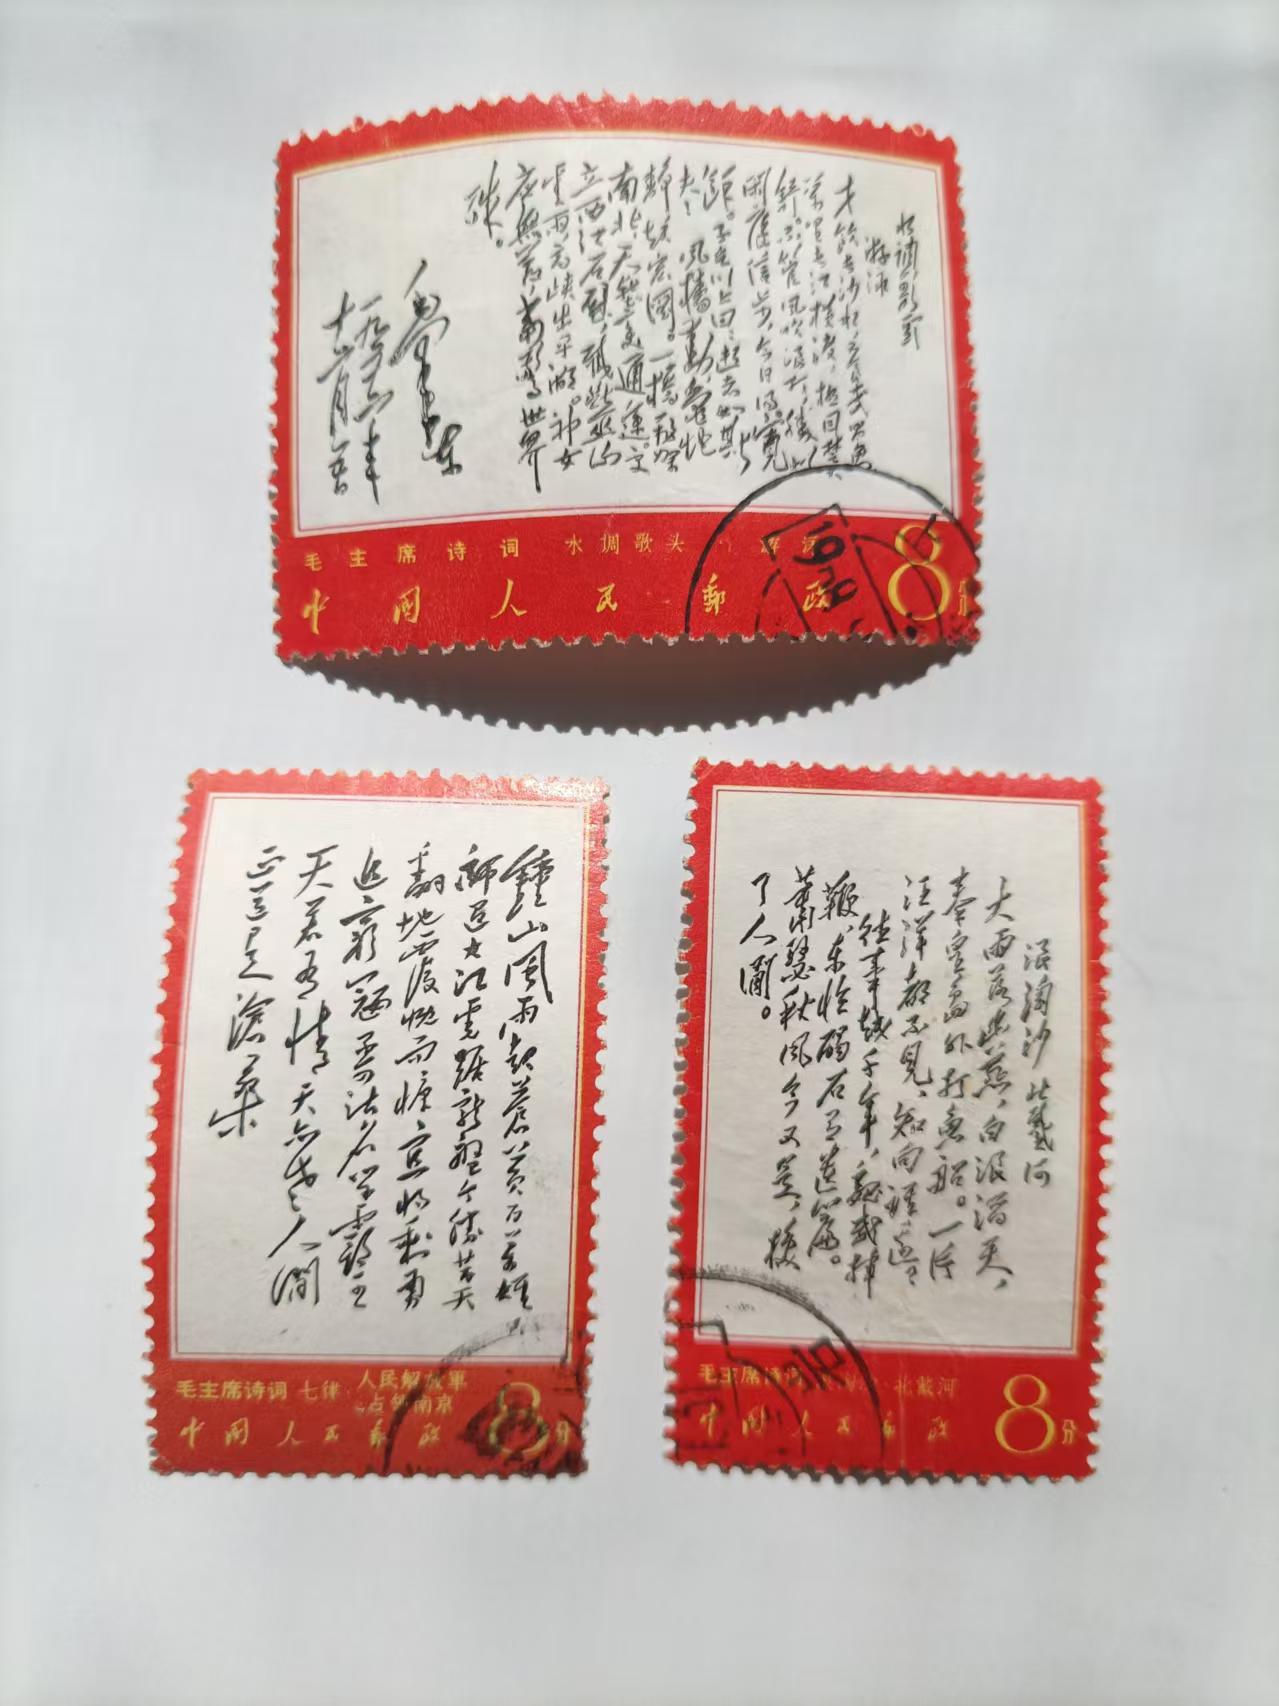 水调歌头
游泳
才饮长沙水，又食武昌鱼
万里长江横渡，极目楚天
舒。不管风吹浪打，胜似
闲庭信步，今日得宽
馀。子在川上曰：逝者如斯
夫！风樯动，龟蛇
静，起宏图。一桥飞架
南北，天堑变通途。更
立西江石壁，截断巫山
云雨，高峡出平湖。神女
应无恙，当惊世界
殊。
毛泽东
一九五六年
十二月五日
毛主席诗词 水调歌头·游泳
中国人民邮政
8分
1970
鐘山風雨起蒼黄百萬雄
師過大江虎踞龍盤今勝昔天
翻地覆慨而慷宜將剩勇
追窮寇不可沽名學霸王
天若有情天亦老人間
正道是滄桑
毛主席诗词 七律·人民解放軍
占领南京
中国人民邮政
8分
浪淘沙 北戴河
大雨落幽燕，白浪滔天，
秦皇岛外打鱼船。一片
汪洋都不见，知向谁边？
往事越千年，魏武挥
鞭，东临碣石有遗篇。
萧瑟秋风今又是，换
了人间。
毛主席诗词 浪淘沙·北戴河
中国人民邮政
8分